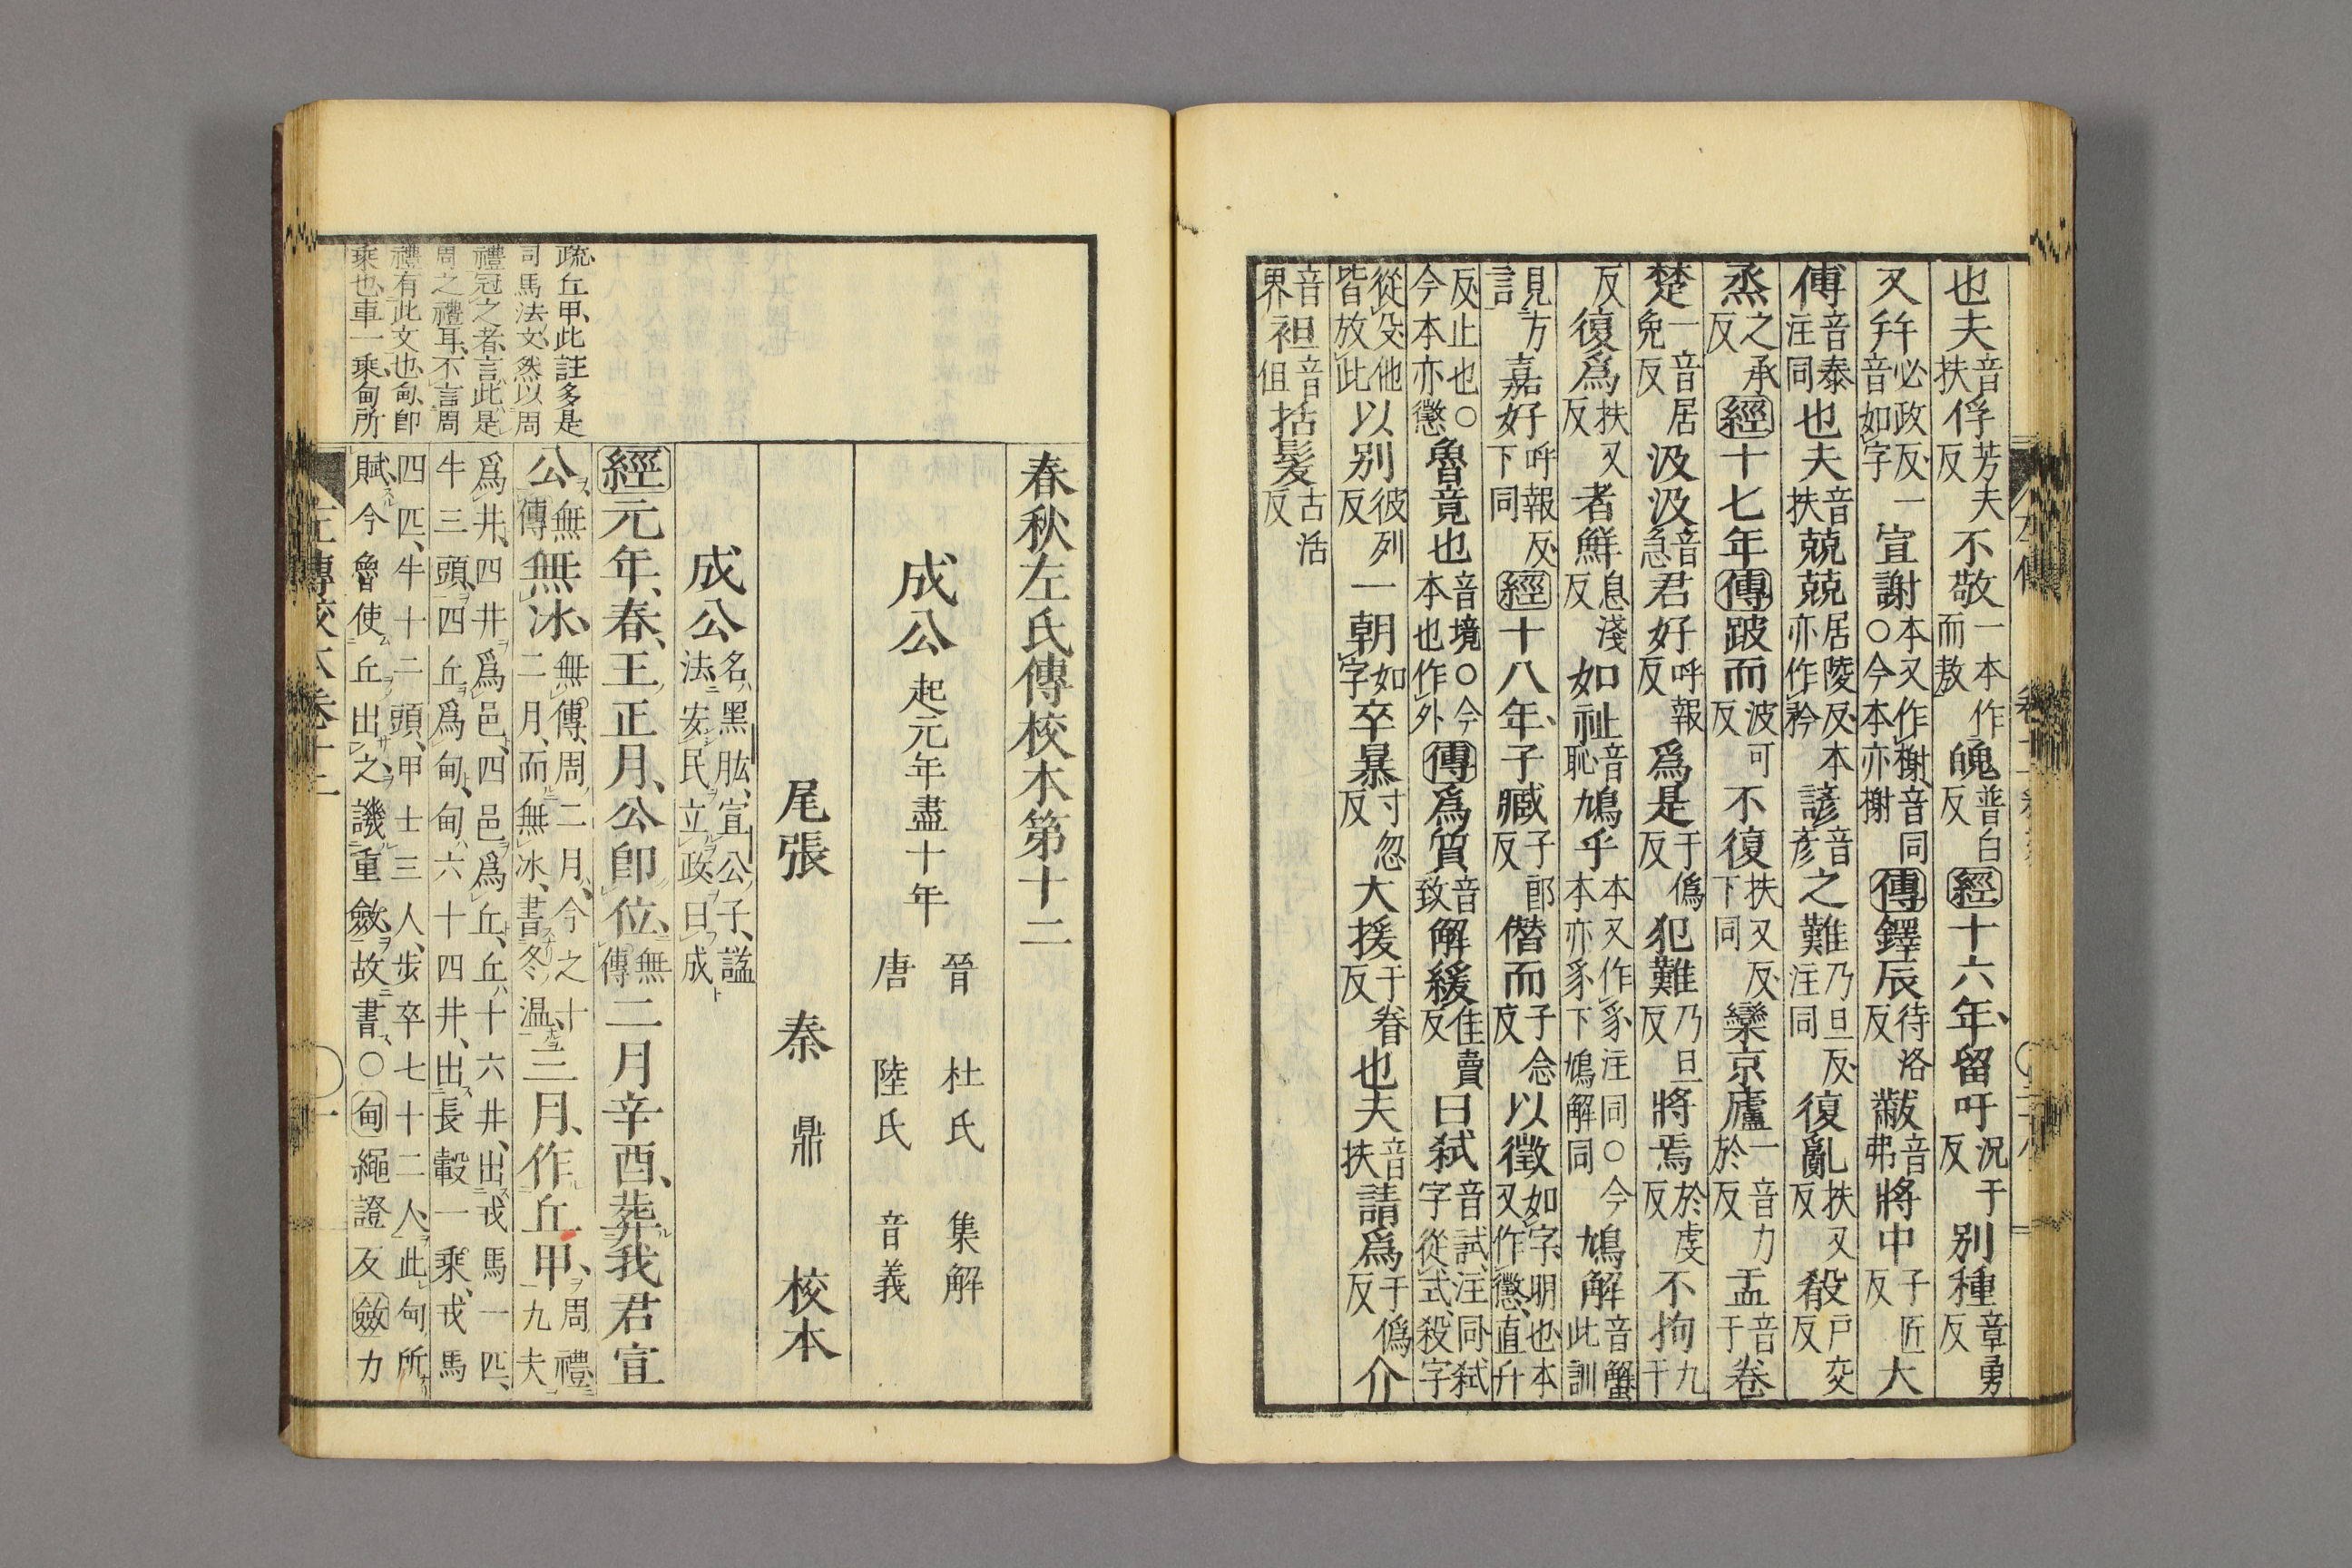 也夫音扶俘芳夫反不敬一本作而敖魄普白反經十六年、留吁況于反別種章勇反
又幷必政反一音如字宣謝本又作榭、音同○今本亦榭傳鐸辰待洛反黻音弗將中子匠反大
傅音泰注同也夫音扶兢兢居陵反本亦作矜諺音彥之難乃旦反注同復亂扶又反殽戶交反
烝之承反經十七年傳跛而波可反不復扶又反下同欒京廬一音力於反盂音于卷
楚一音居免反汲汲音急君好呼報反爲是于僞反犯難乃旦反將焉於虔反不拘九于
反復爲扶又反者鮮息淺反如祉音恥鳩乎本又作豸注同○今本亦豸下鳩解同鳩解音蟹此訓
見方言嘉好呼報反下同經十八年、子臧子郎反僭而子念反以徵如字明也本又作懲、直升
反止也○今本亦懲魯竟也音境○今本也作外傳爲質音致解緩佳賣反曰弑音試注同弑字從式、殺字
從殳他皆放此以別彼列反一朝如字卒暴寸忽反大援于眷反也夫音扶請爲于僞反介
音界袒音但括髮古活反
春秋左氏傳校本第十二
成公起元年盡十年
晉 杜氏 集解
唐 陸氏 音義
尾張 秦鼎 校本
成公名黑肱、宣公子、謚法安民立政曰成
經元年、春、王正月、公即位、無傳二月辛酉、葬我君宣
公、無傳無冰、無傳、周二月、今之十二月、而無冰、書冬温、三月、作丘甲、周禮九夫
爲井、四井爲邑、四邑爲丘、丘十六井、出戎馬一匹、牛三頭、四丘爲甸、甸六十四井、出長轂一乘、戎馬
四匹、牛十二頭、甲士三人、步卒七十二人、此甸所賦、今魯使丘出之、譏重斂、故書○甸繩證反斂力
疏丘甲、此註多是
司馬法文、然以周
禮冠之者、言此是
周之禮耳、不言周
禮有此文也、甸即
乘也、車一乘、甸所
左傳校本卷十二
一